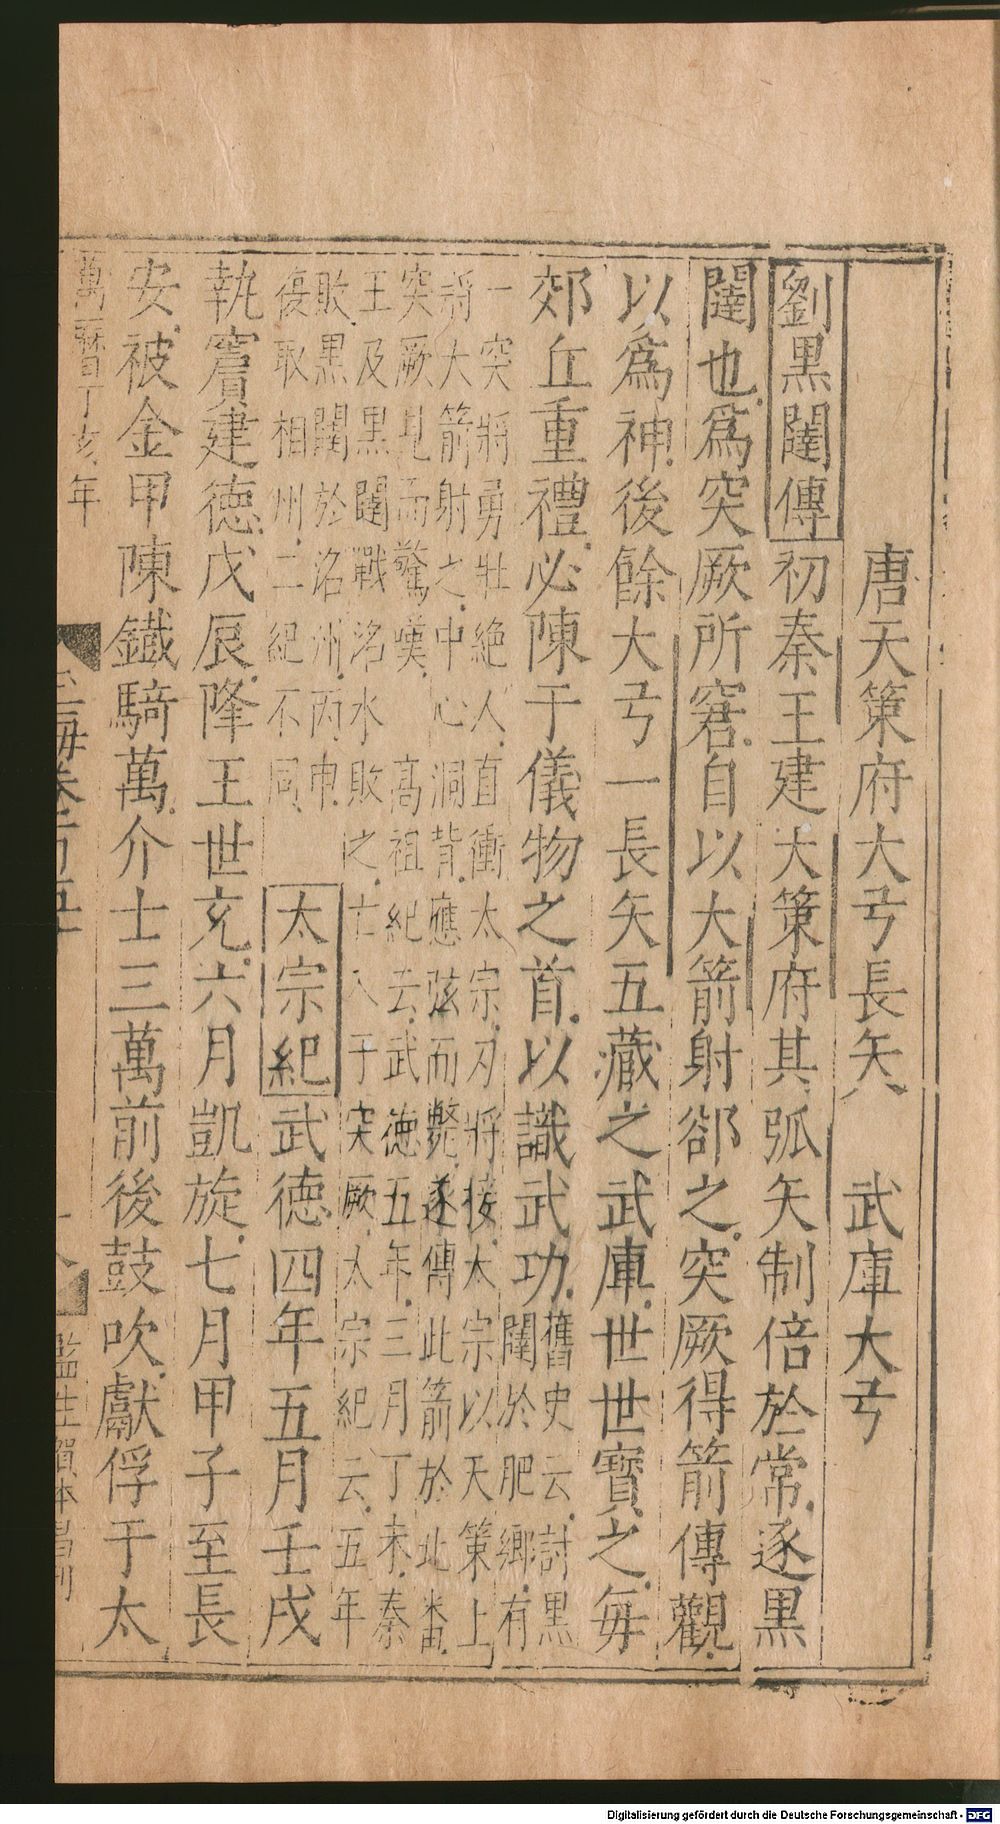 唐天策府大弓長矢　武庫大弓
劉黒闥傳初秦王建大策府其弧矢制倍於常逐黒
闥也爲突厥所窘自以大箭射郤之突厥得箭傳觀
以爲神後餘大弓一長矢五藏之武庫世世寳之每
郊丘重禮必陳于儀物之首以識武功舊史云討黒
闥於肥鄉有
一突將勇壯絶人直衝太宗刃將接太宗以天策上
將大箭射之中心洞背應弦而斃遂傳此箭於北番
突厥見而驚嘆　高祖紀云武德五年三月丁未秦
王及黒闥戰洺水敗之亡入于突厥太宗紀云五年
敗黒闥於洺州丙申
復取相州二紀不同
太宗紀武德四年五月壬戌
執竇建德戊辰降王世充六月凱旋七月甲子至長
安被金甲陳鐵騎萬介士三萬前後鼓吹獻俘于太
萬曆丁亥年
監生賀
刊
Digitalisierung gefördert durch die Deutsche Forschungsgemeinschaft - DFG